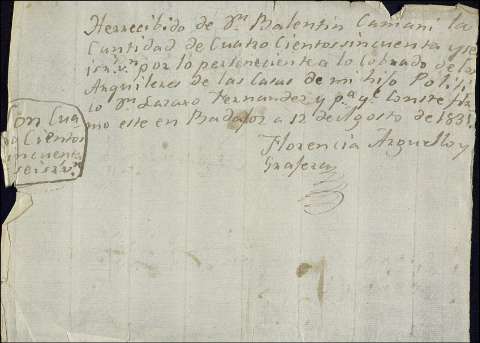 Herrecibido de Dn Balentin Camani la
Cantidad de Cuatro Cientos sincuenta y se
is rs vn por lo perteneciente a lo Cobrado de los
Arquileres de las Casas de mi hijo Politi
co Dn Lazaro Fernandez y pa qe Conste fir
mo este en Badajoz a 12 de Agosto de 1831
Florencia Arguello y
Grajera
Son Cua
tro Cientos
sincuenta
seis rs vn